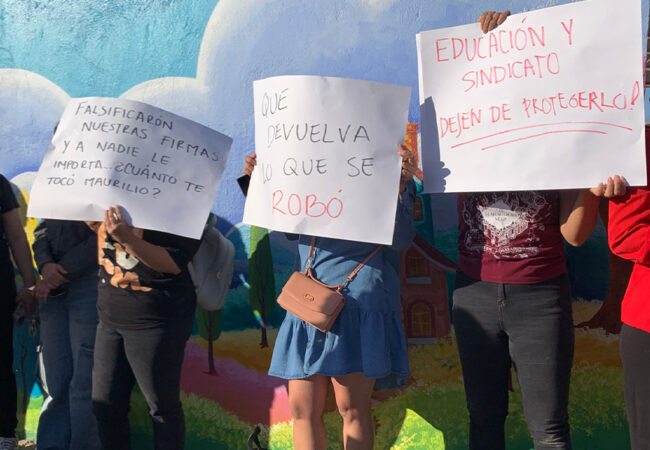 FALSIFICARÓN
NUESTRAS FIRMAS
Y A NADIE LE
IMPORTA...¿CUÁNTO TE
TOCÓ MAURILIO?
QUÉ
DEVUELVA
LO QUE SE
ROBÓ
EDUCACIÓN Y
SINDICATO
DEJEN DE PROTEGERLO!